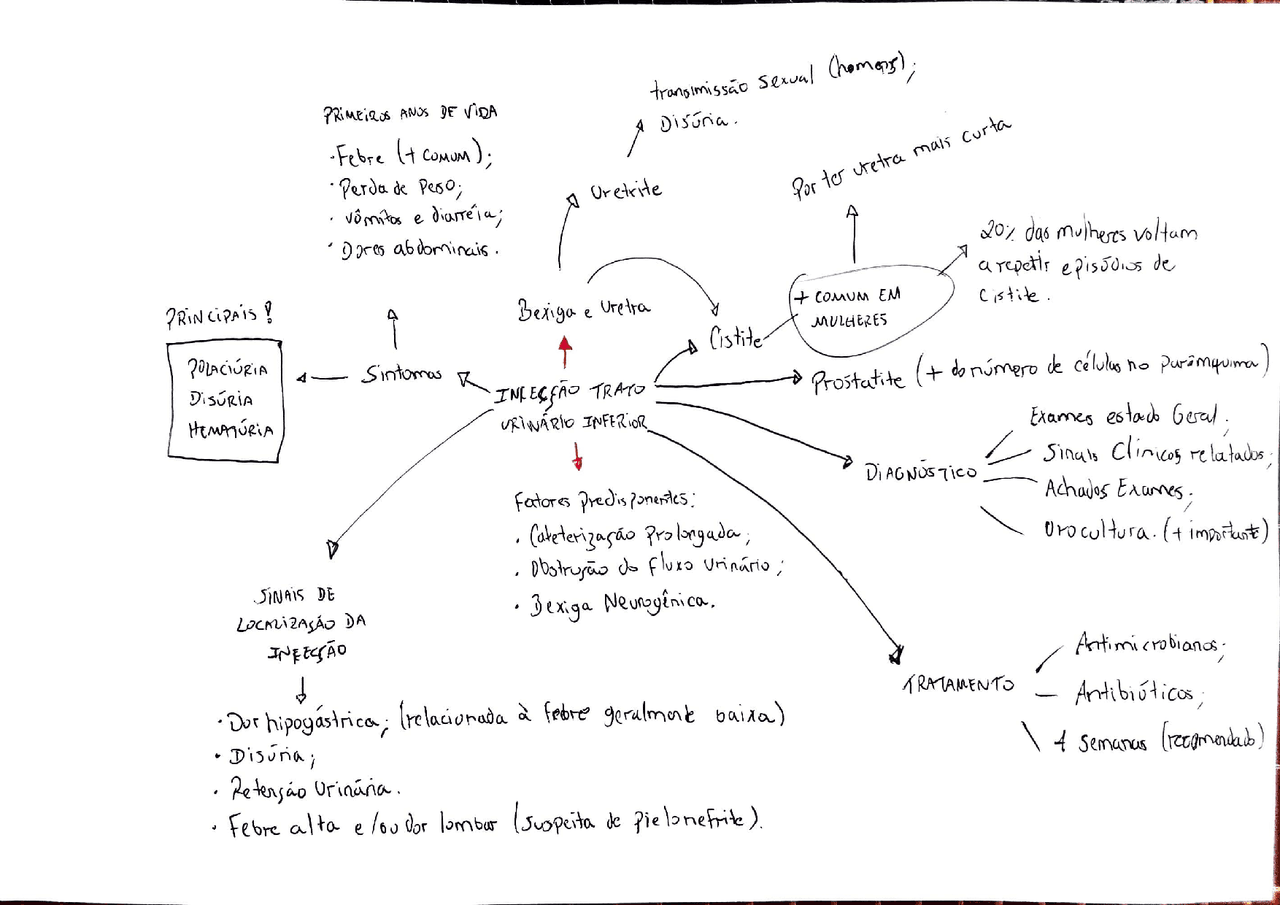 transmissão sexual (homens);
Disúria.
PRIMEIROS ANOS DE VIDA
·Febre (+ COMUM);
·Perda de Peso;
· vômitos e diarréia;
· Dores abdominais.
Uretrite
Por ter uretra mais curta
20% das mulheres voltam
a repetir episódios de
Cistite.
Bexiga e Uretra
+ COMUM EM
MULHERES
Cistite
PRINCIPAIS!
POLACIÚRIA
DISÚRIA
HEMATÚRIA
Sintomas
INFECÇÃO TRATO
URINÁRIO INFERIOR
Prostatite (+ do número de células no parâmquima)
DIAGNÓSTICO
Exames estado Geral;
Sinais Clínicos relatados;
Achados Exames;
Urocultura. (+ importante)
Fatores Predisponentes:
· Cateterização Prolongada;
· Obstrução do Fluxo Urinário;
· Bexiga Neurogênica.
SINAIS DE
LOCALIZAÇÃO DA
INFECÇÃO
·Dor hipogástrica; (relacionada à febre geralmente baixa)
· Disúria;
· Retenção Urinária.
· Febre alta e/ou dor lombar (suspeita de pielonefrite).
TRATAMENTO
Antimicrobianos;
Antibióticos;
semanas (recomendado)